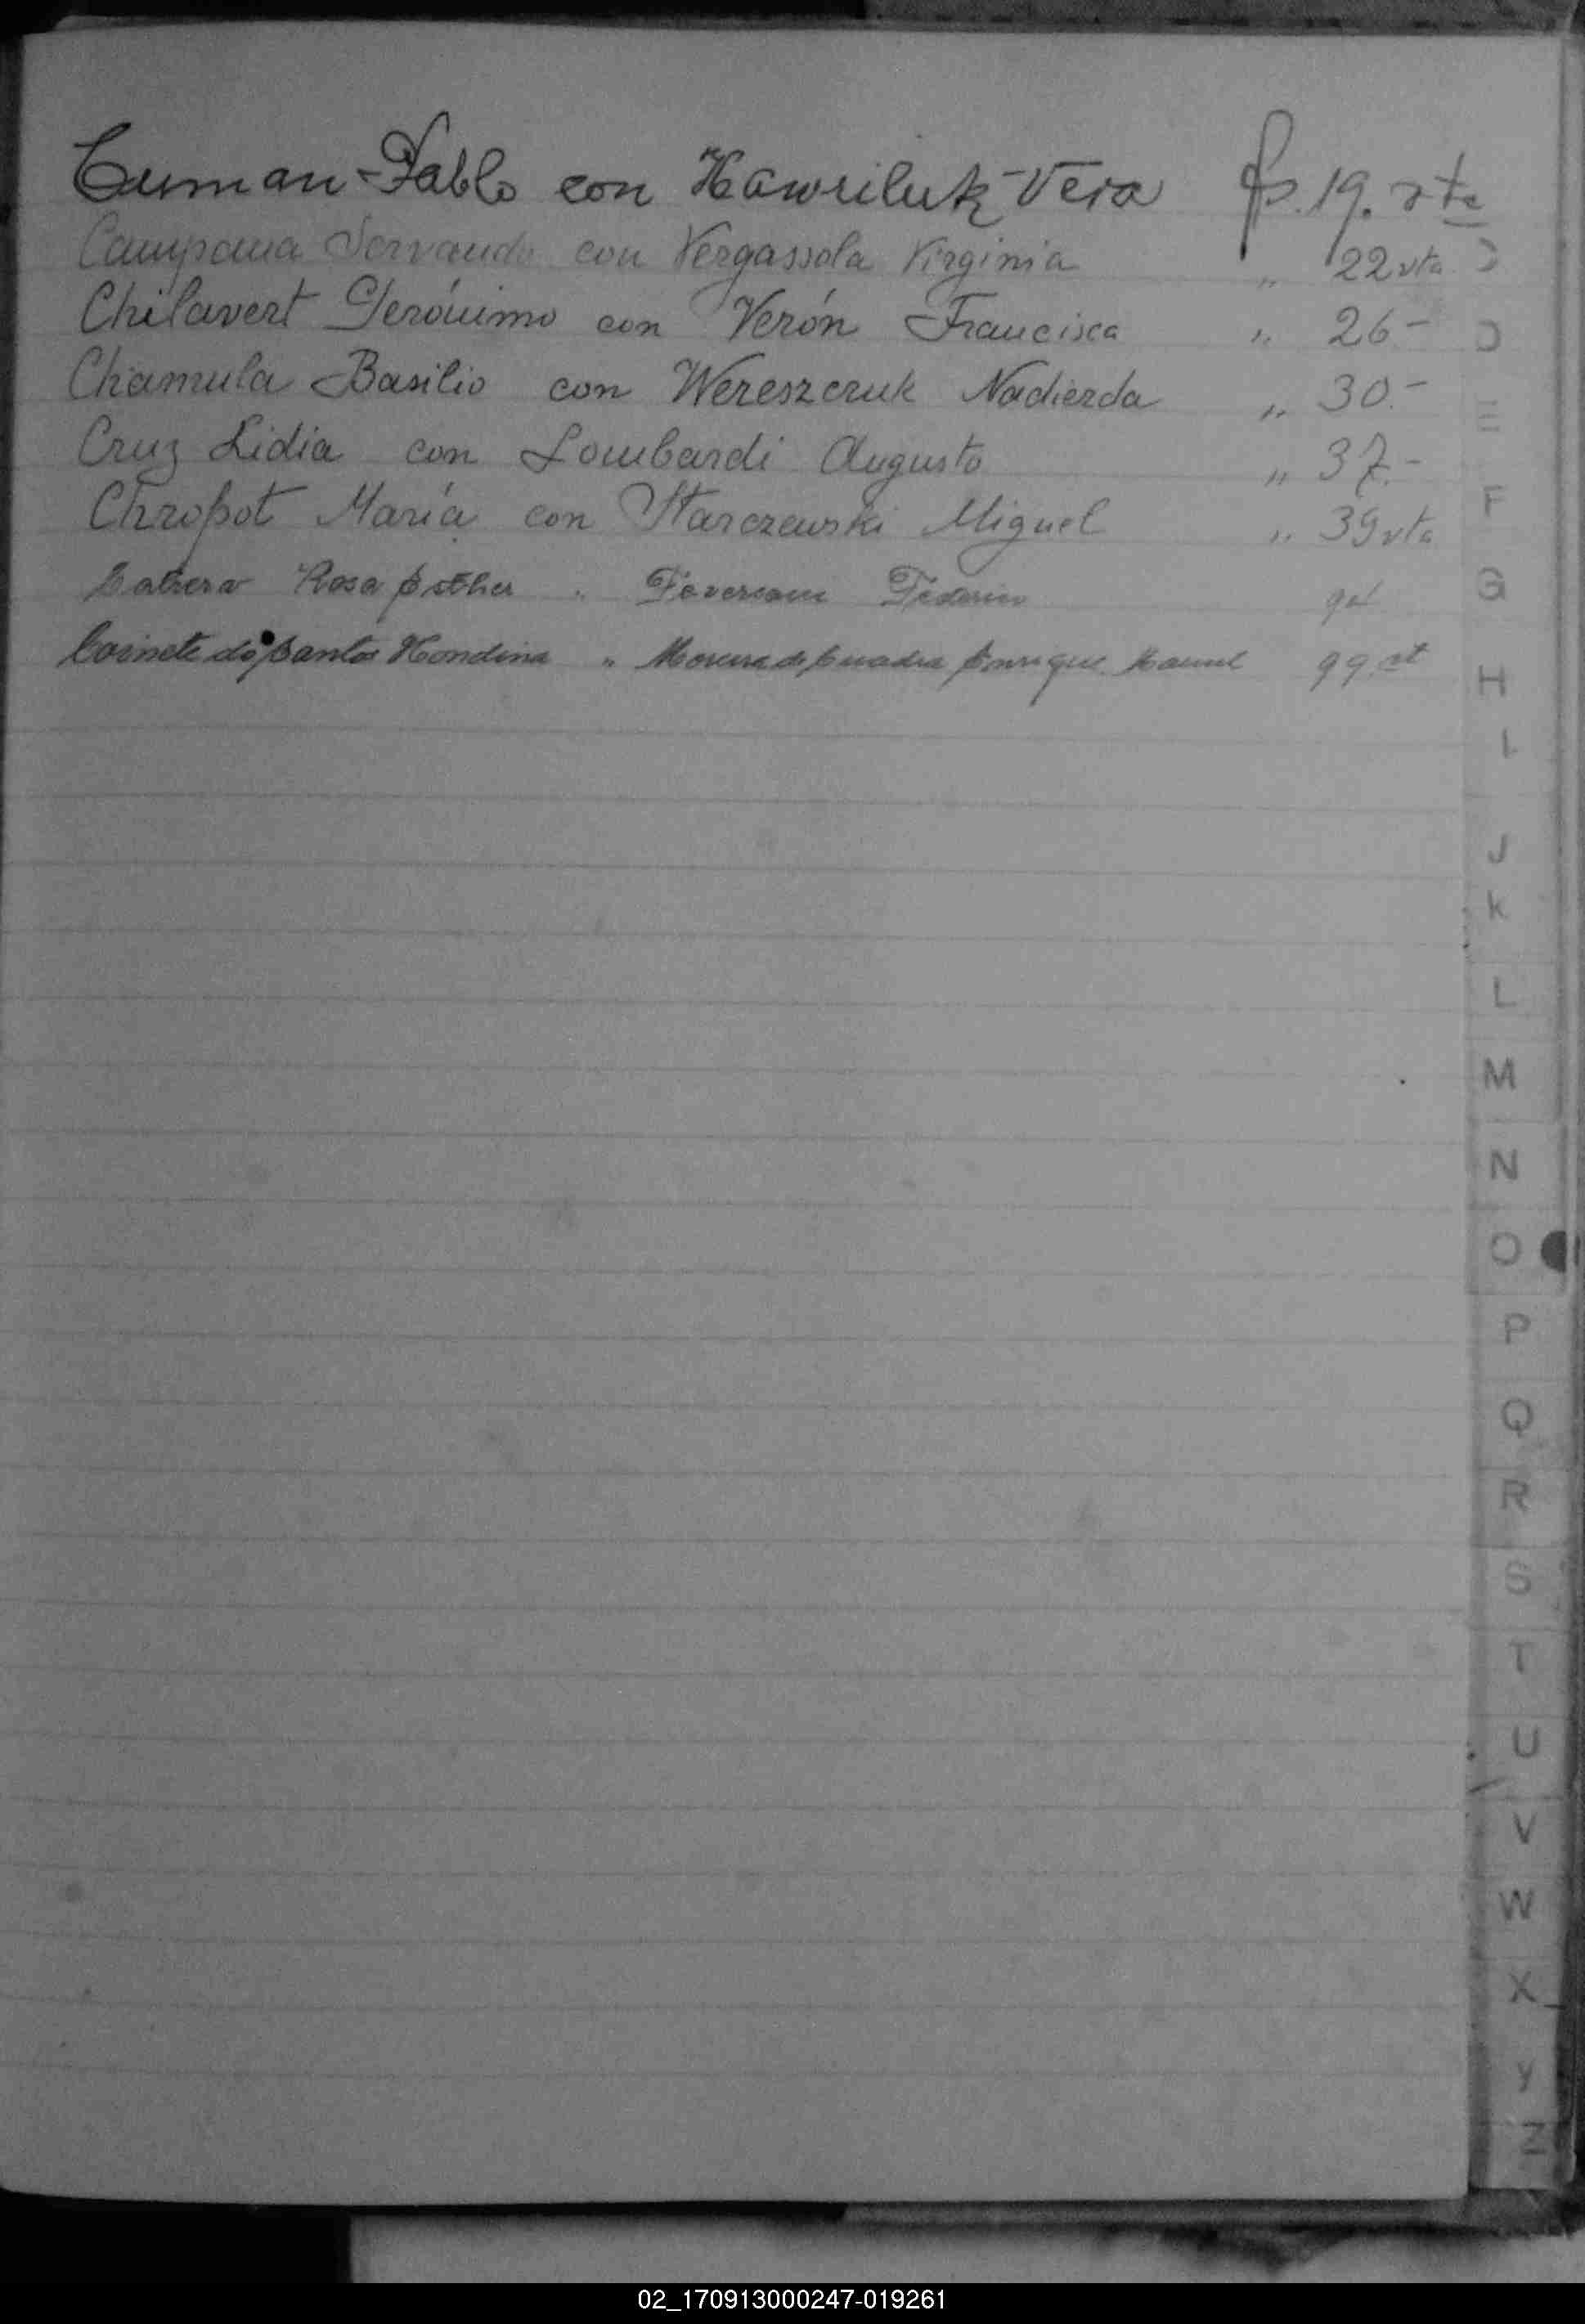 Cuman-Pablo con Hawriluk-Vera fs. 19. vta
Campana Servando con Vergassola Virginia " 22 vta
Chilavert Gerónimo con Verón Francisca " 26-
Chamula Basilio con Wereszczuk Nadierda " 30.-
Cruz Lidia con Lombardi Augusto " 37.-
Chropot María con Starczewski Miguel " 39 vta
Rosa Esther "
Santos " Enrique Manuel 99 vt
D
D
E
F
G
H
I
J
K
L
M
N
O
P
Q
R
S
T
U
V
W
X
Y
Z
02_170913000247-019261